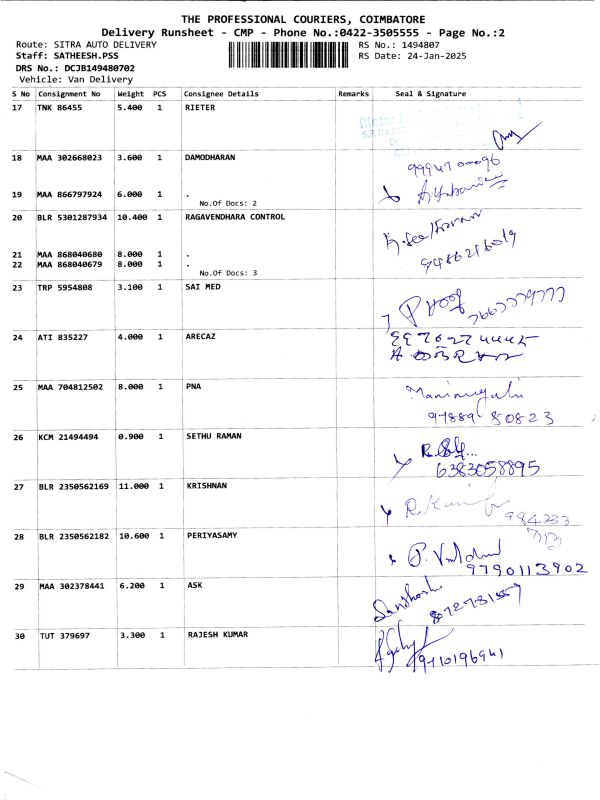 THE PROFESSIONAL COURIERS, COIMBATORE
Delivery Runsheet - CMP - Phone No.:0422-3505555 - Page No.:2
Route: SITRA AUTO DELIVERY
RS No.: 1494807
Staff: SATHEESH.PSS
RS Date: 24-Jan-2025
DRS No.: DCJB149480702
Vehicle: Van Delivery
S No Consignment No Weight PCS Consignee Details Remarks Seal & Signature
17 TNK 86455 5.400 1 RIETER
18 MAA 302668023 3.600 1 DAMODHARAN
19 MAA 866797924 6.000 1 .
No.Of Docs: 2
20 BLR 5301287934 10.400 1 RAGAVENDHARA CONTROL
21 MAA 868040680 8.000 1 .
22 MAA 868040679 8.000 1 .
No.Of Docs: 3
23 TRP 5954808 3.100 1 SAI MED
24 ATI 835227 4.000 1 ARECAZ
25 MAA 704812502 8.000 1 PNA
97889-50823
26 KCM 21494494 0.900 1 SETHU RAMAN
6383058895
27 BLR 2350562169 11.000 1 KRISHNAN
28 BLR 2350562182 10.600 1 PERIYASAMY
9790113902
29 MAA 302378441 6.200 1 ASK
Santhosh
30 TUT 379697 3.300 1 RAJESH KUMAR